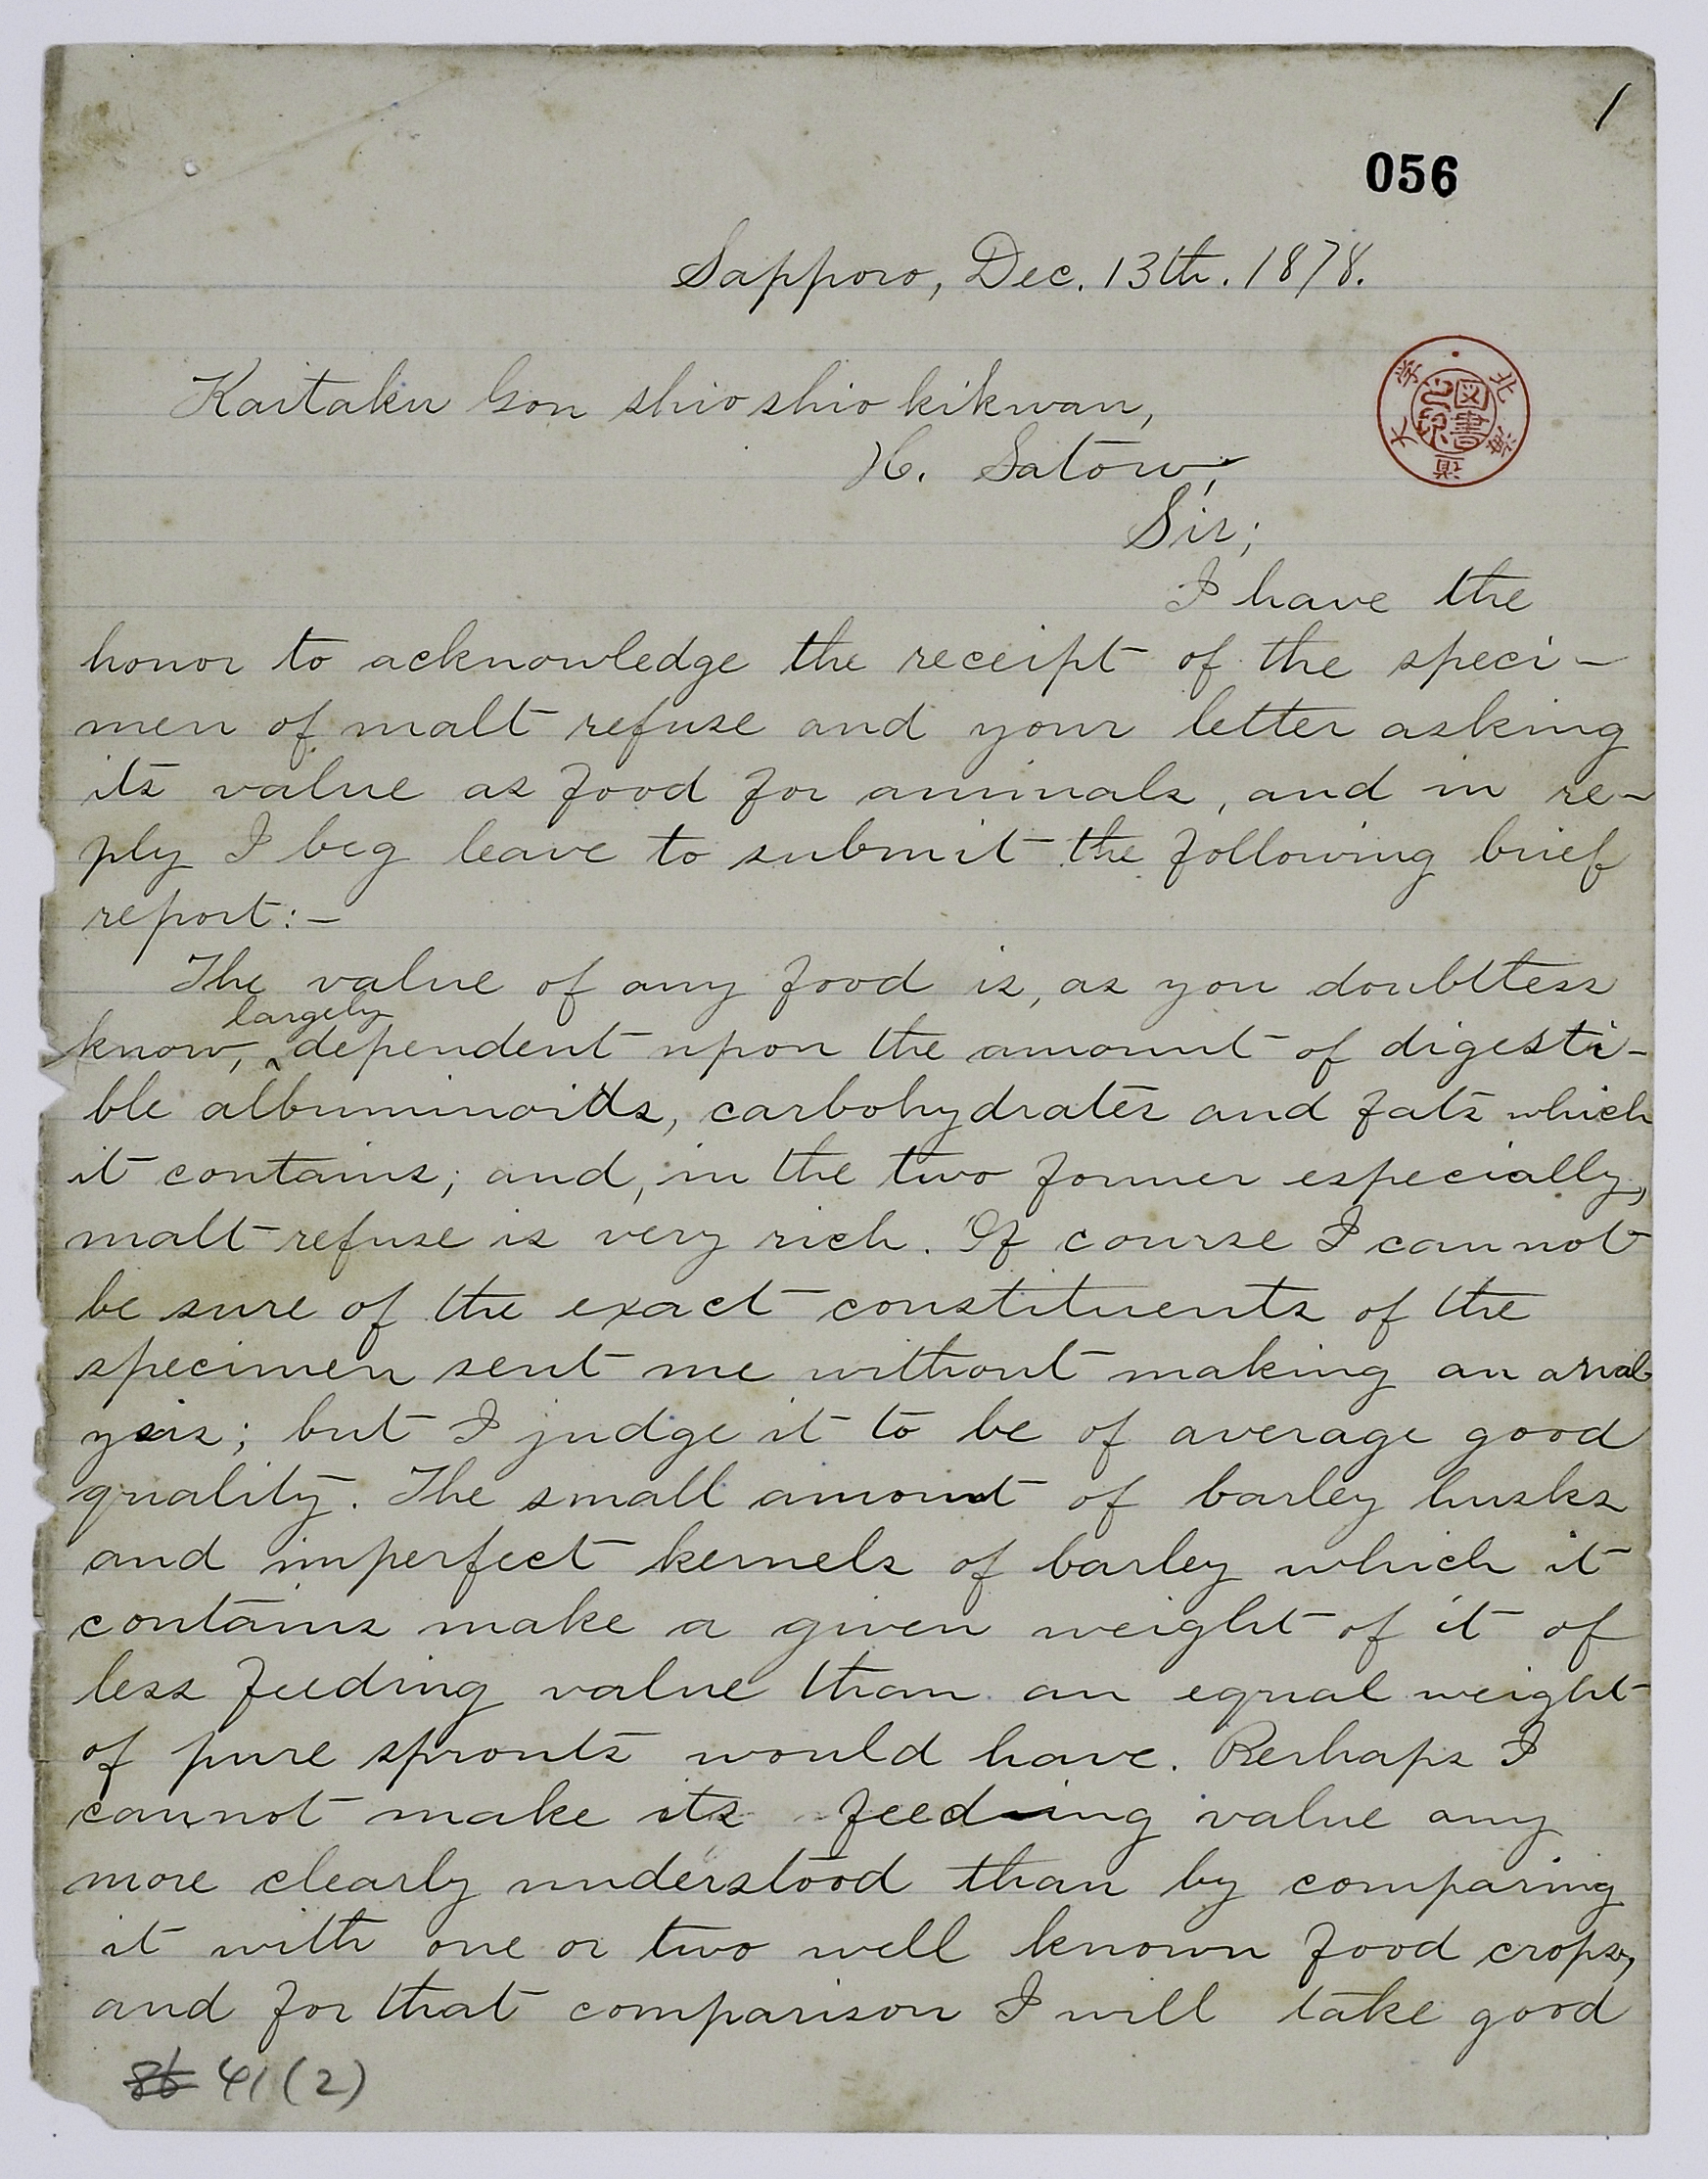 1
056
Sapporo, Dec. 13th. 1878.
Kaitaku Gon shio shio kikwan,
北海道大学
図書之印
H. Satow,
Sir;
I have the
honor to acknowledge the receipt of the speci-
men of malt refuse and your letter asking
its value as food for animals, and in re-
ply I beg leave to submit the following brief
report:-
The value of any food is, as you doubttess
largely
know, ^ dependent upon the amount of digesti-
ble albuminoids, carbohydrates and fats which
it contains; and, in the two former especially,
malt refuse is very rich. Of course I cannot
be sure of the exact constituents of the
specimen sent me without making an anal-
ysis; but I judge it to be of average good
quality. The small amount of barley husks
and imperfect kernels of barley which it
contains make a given weight of it of
less feeding value than an equal weight
of pure sprouts would have. Perhaps I
cannot make its feeding value any
more clearly understood than by comparing
it with one or two well known food crops,
and for that comparison I will take good
86 41(2)